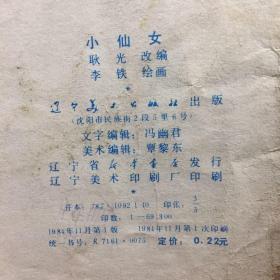 小仙女
耿光 改编
李铁 绘画
辽宁美术出版社出版
(沈阳市民族街2段5里6号)
文字编辑:冯幽君
美术编辑:覃黎东
辽宁省新华书店发行
辽宁美术印刷厂印刷
开本:787×1092 1/40 印张:3 3/5
印数:1—69,300
1984年11月第1版 1984年11月第1次印刷
统一书号:R7161·0075 定价:0.22元